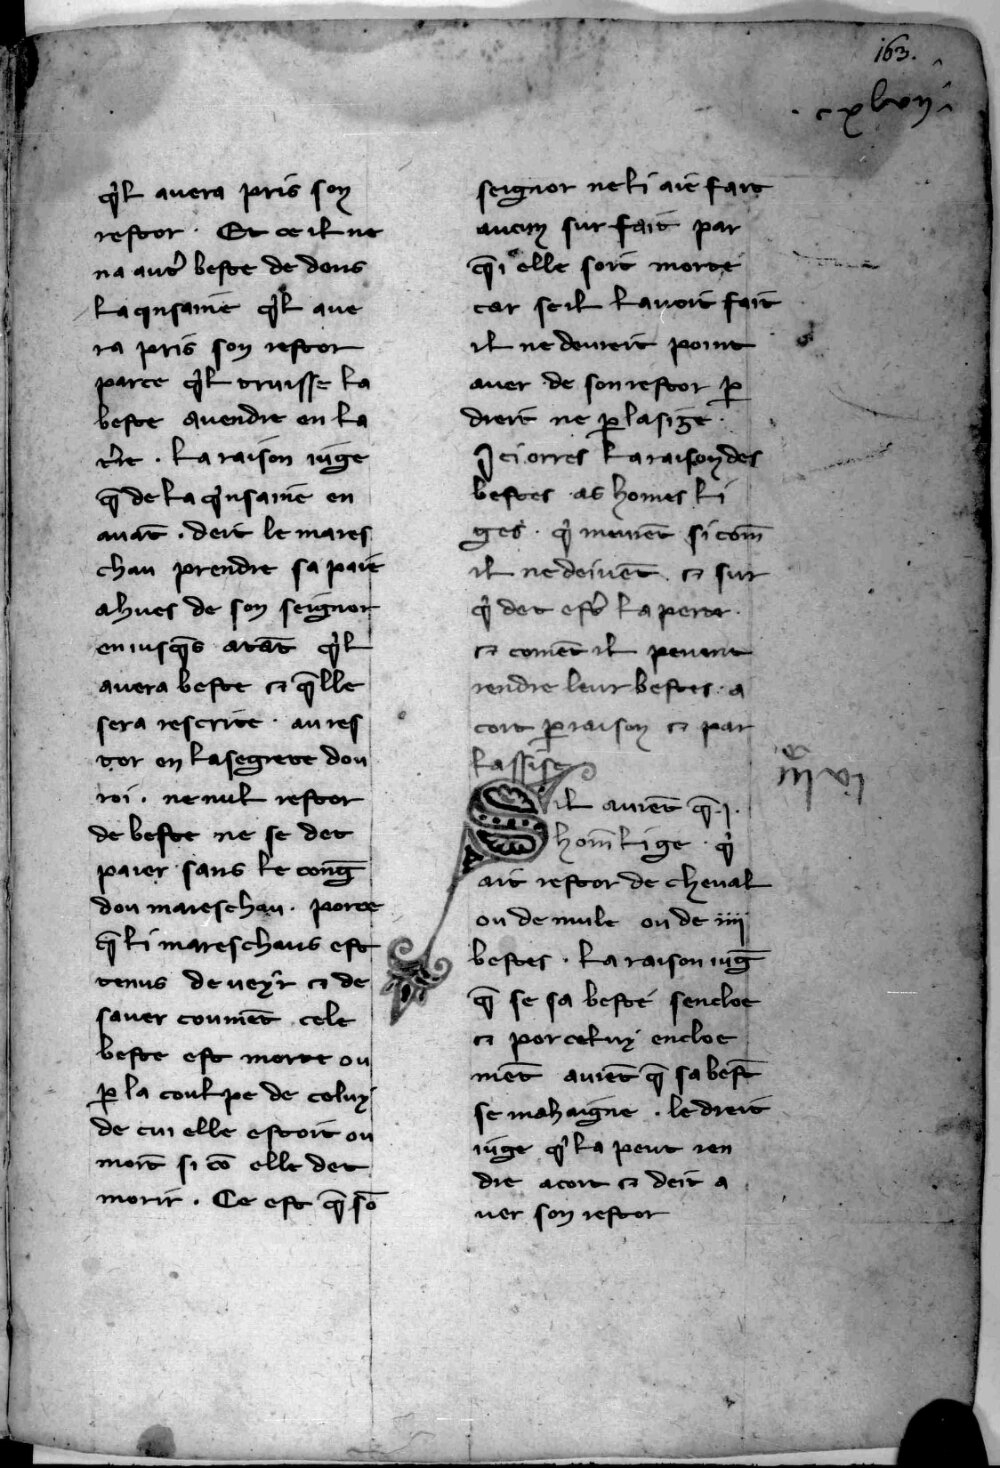 163.
cxlvij
q̾l avera pris son
restor · Et ce il ne
na aut̾ beste de dens
la qnsaine q̾l ave
ra pris son restor
parce q̾l truisse la
beste avendre en la
t̾re · la raison iuge
q̄ de la q̾nsaine en
avāt · deit le mares
chau prendre sa paie
ahues de son seignor
eniusq̄s atāt q̾l
avera beste ⁊ q̄lle
sera rescrite · au res
tor en lasegrete dou
roi · ne nul restor
de beste ne se det
paier sans le conḡ
dou mareschau · porce
q̄ li mareschaus est
tenus de vey̾r ⁊ de
saver coument cele
beste est morte ou
ꝑ la coulpe de celuy
de cui elle estoit ou
mort si cō elle det
morir · Ce est q̄ sō
seignor ne li aie fait
aucun sur fait par
q̄i elle soit morte
car se il lavoit fait
il ne devreit point
aver de son restor ꝑ
dreit ne ꝑ lasige ·
Ici orres la raison des
bestes as homes li
ges · q̾ meurēt si com̄
il ne deivēt · ⁊ sur
q̾ det est̾ la perte ·
⁊ comēt il pevent
rendre leur bestes · a
cort ꝑ raison ⁊ par
lassise
Sil avient q̄ · i ·
hom̄ lige · q̾
ait restor de cheval
ou de mule ou de iiii
bestes · la raison iuḡ
q̄ se sa beste sencloe
⁊ por celuy encloe
mēt avient q̄ sa best̄
se mahaigne · le dreit
iuge q̾ la peut ren
dre acort ⁊ deit a
ver son restor